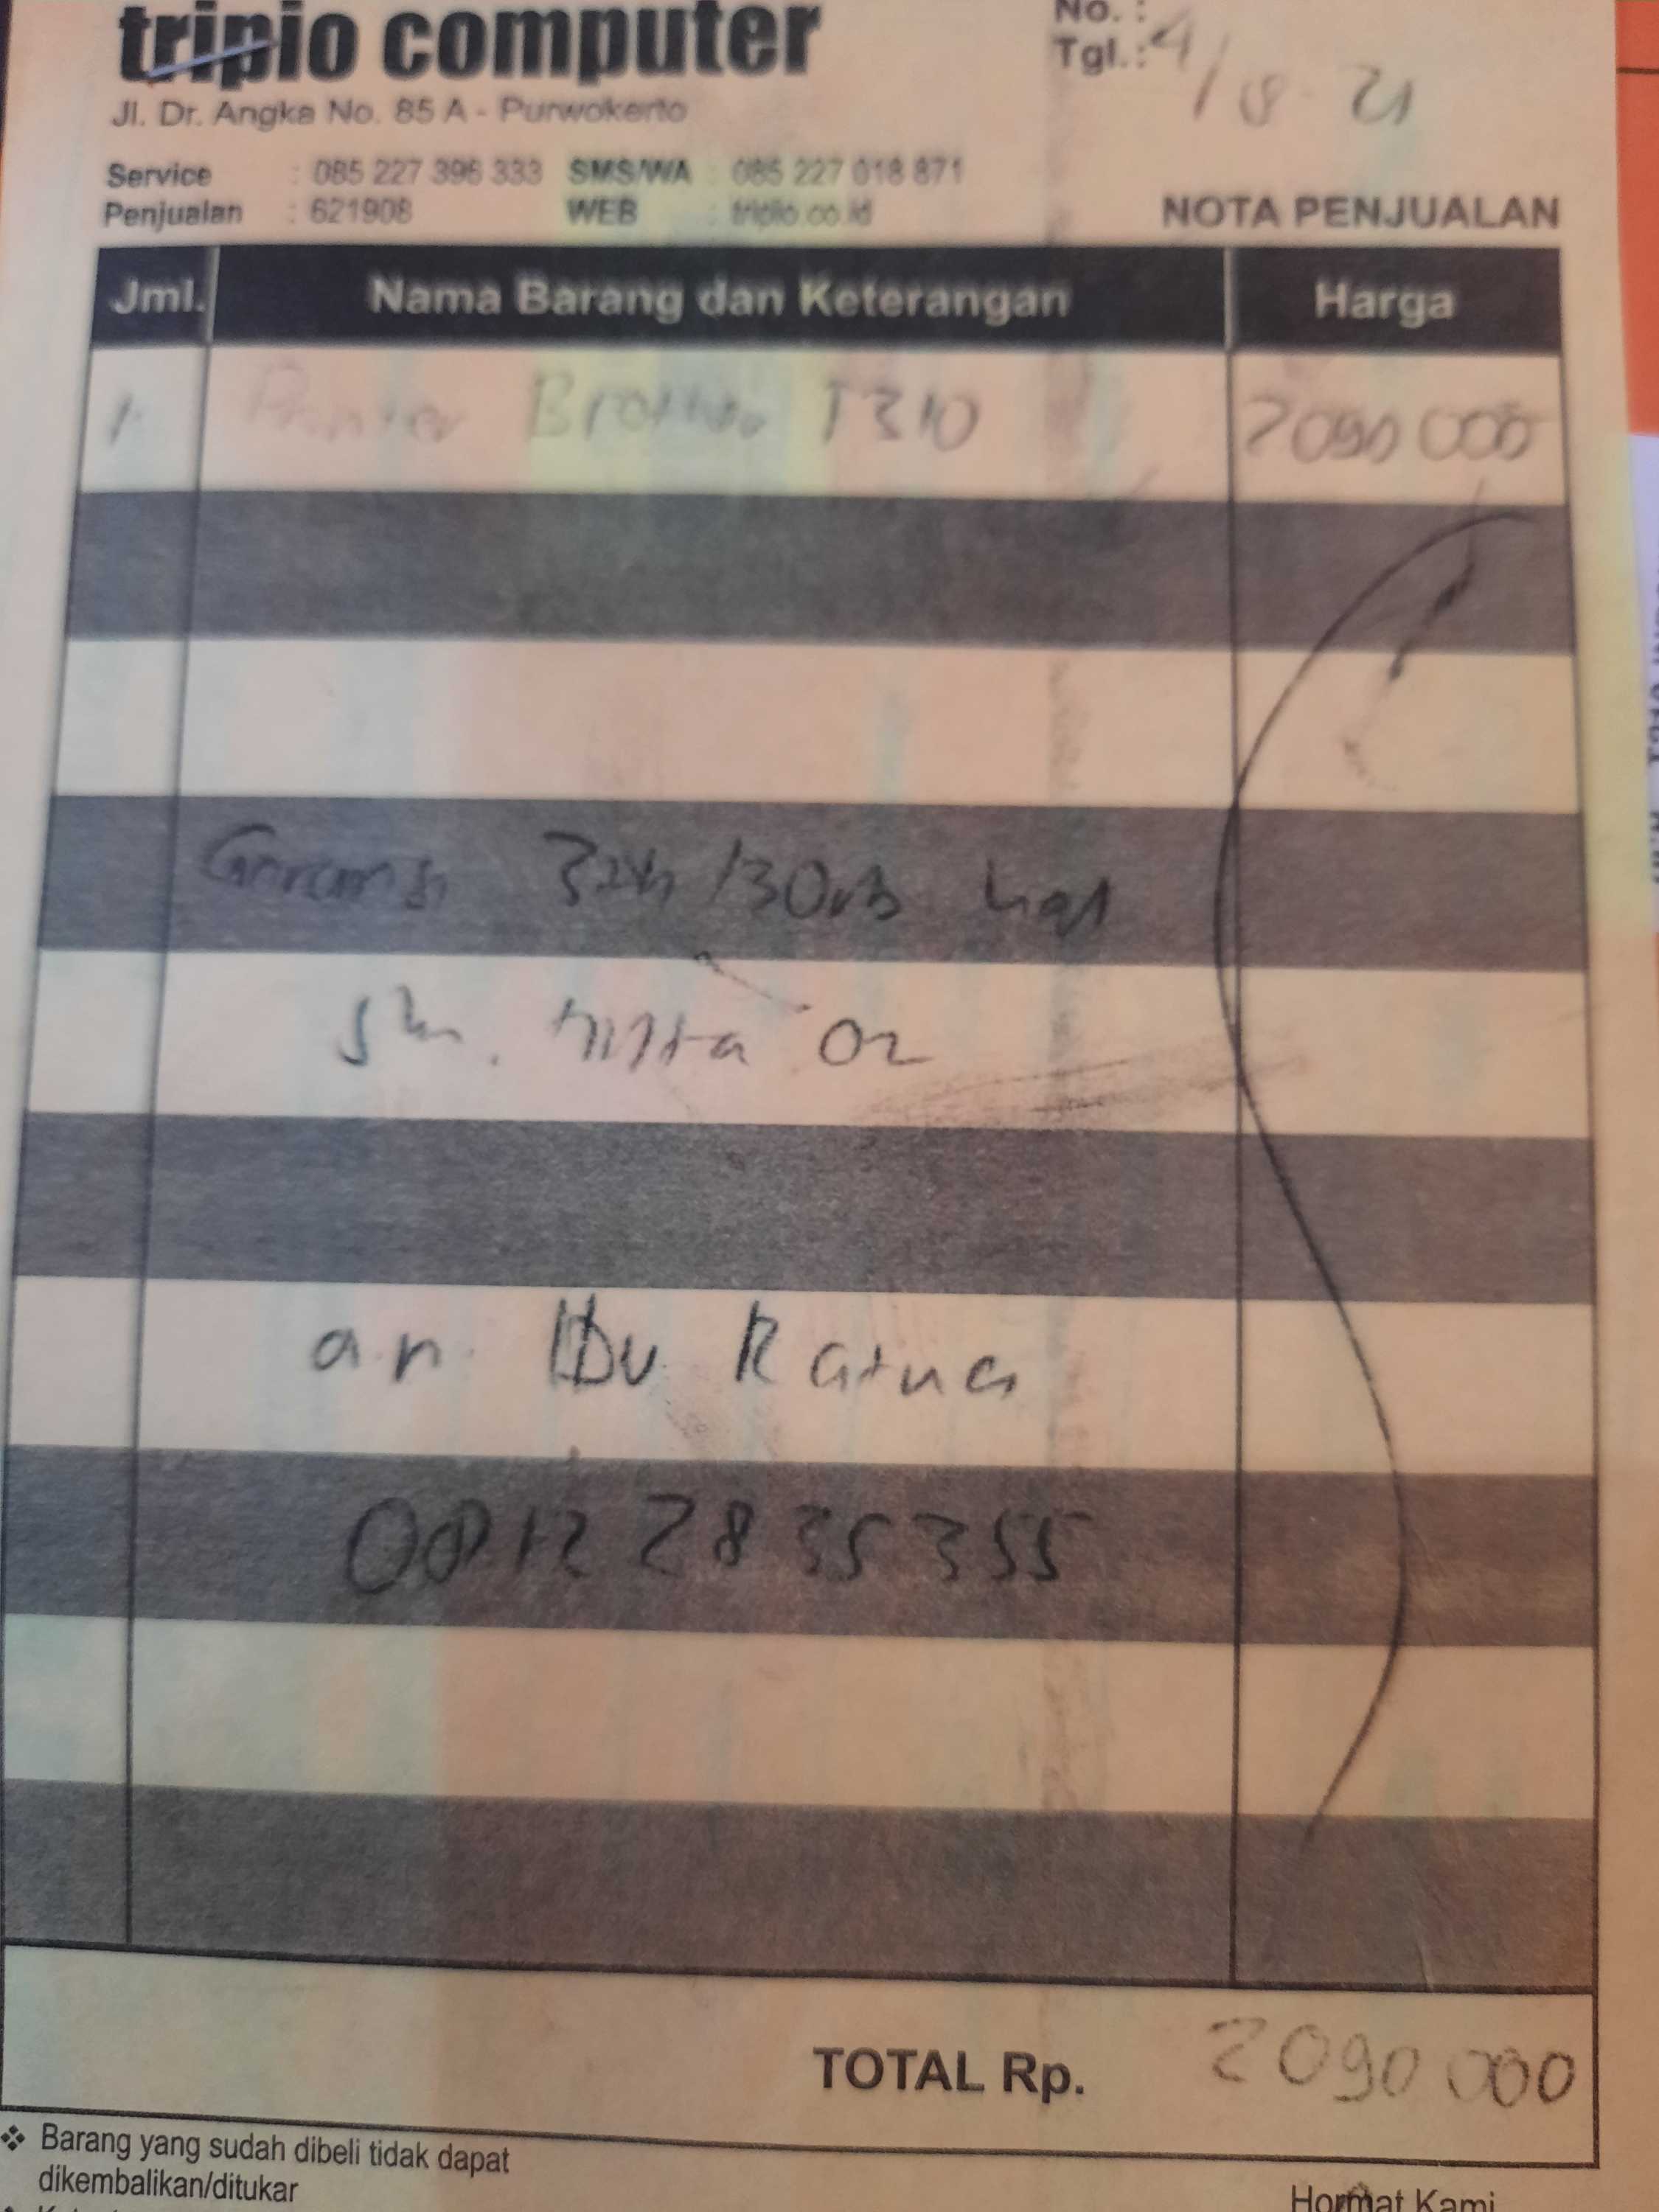 tripio computer
No. :
Tgl.: 4/8-21
Jl. Dr. Angka No. 85 A - Purwokerto
Service : 085 227 396 333 SMS/WA : 085 227 018 871
Penjualan : 621908 WEB : tripio.co.id
NOTA PENJUALAN
Jml. Nama Barang dan Keterangan Harga
1 Printer Brother T310 2090 000
Garansi 3th/30rb hal
tinta Ori
a.n. Ibu Ratna
2835355
TOTAL Rp. 2090 000
❖ Barang yang sudah dibeli tidak dapat
dikembalikan/ditukar
Hormat Kami